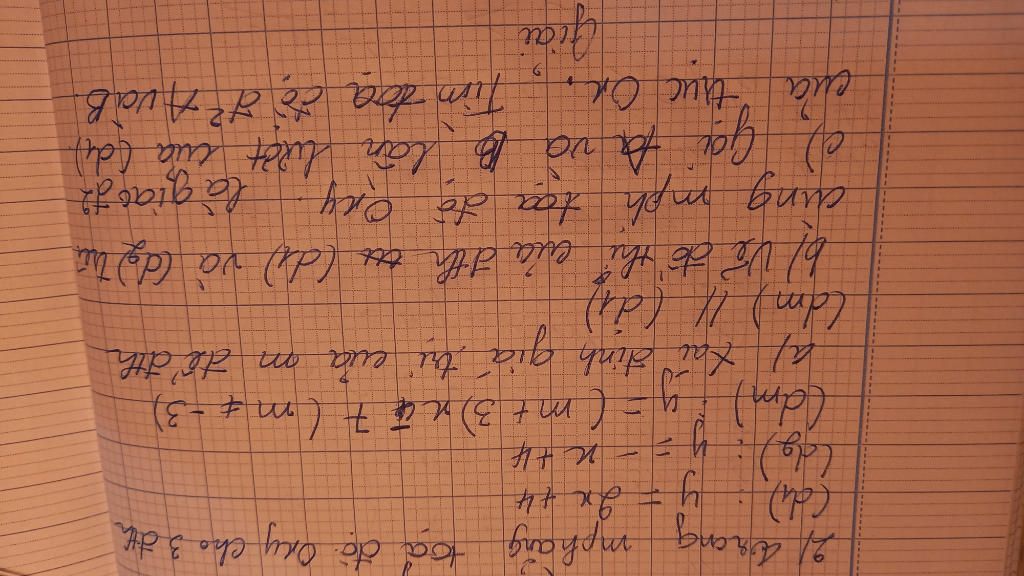 2) Trong mphẳng toạ độ Oxy cho 3 đth
(d1) : y = 2x + 4
(d2) : y = - x + 4
(dm) : y = (m + 3) x - 7 ( m ≠ -3)
a) Xác định giá trị của m để đth
(dm) // (d1)
b) Vẽ đồ thị của đth (d1) và (d2) trên
cùng mph toạ độ Oxy.
là giao đ²
c) Gọi A và B lần lượt của (d1)
của trục Ox. Tìm toạ độ đ² A và B
Giải